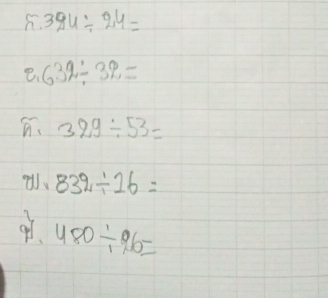 ក. 384 ÷ 24 =
ខ. 632 ÷ 32 =
គ. 329 ÷ 53 =
ឃ. 832 ÷ 26 =
ង. 480 ÷ 96 =